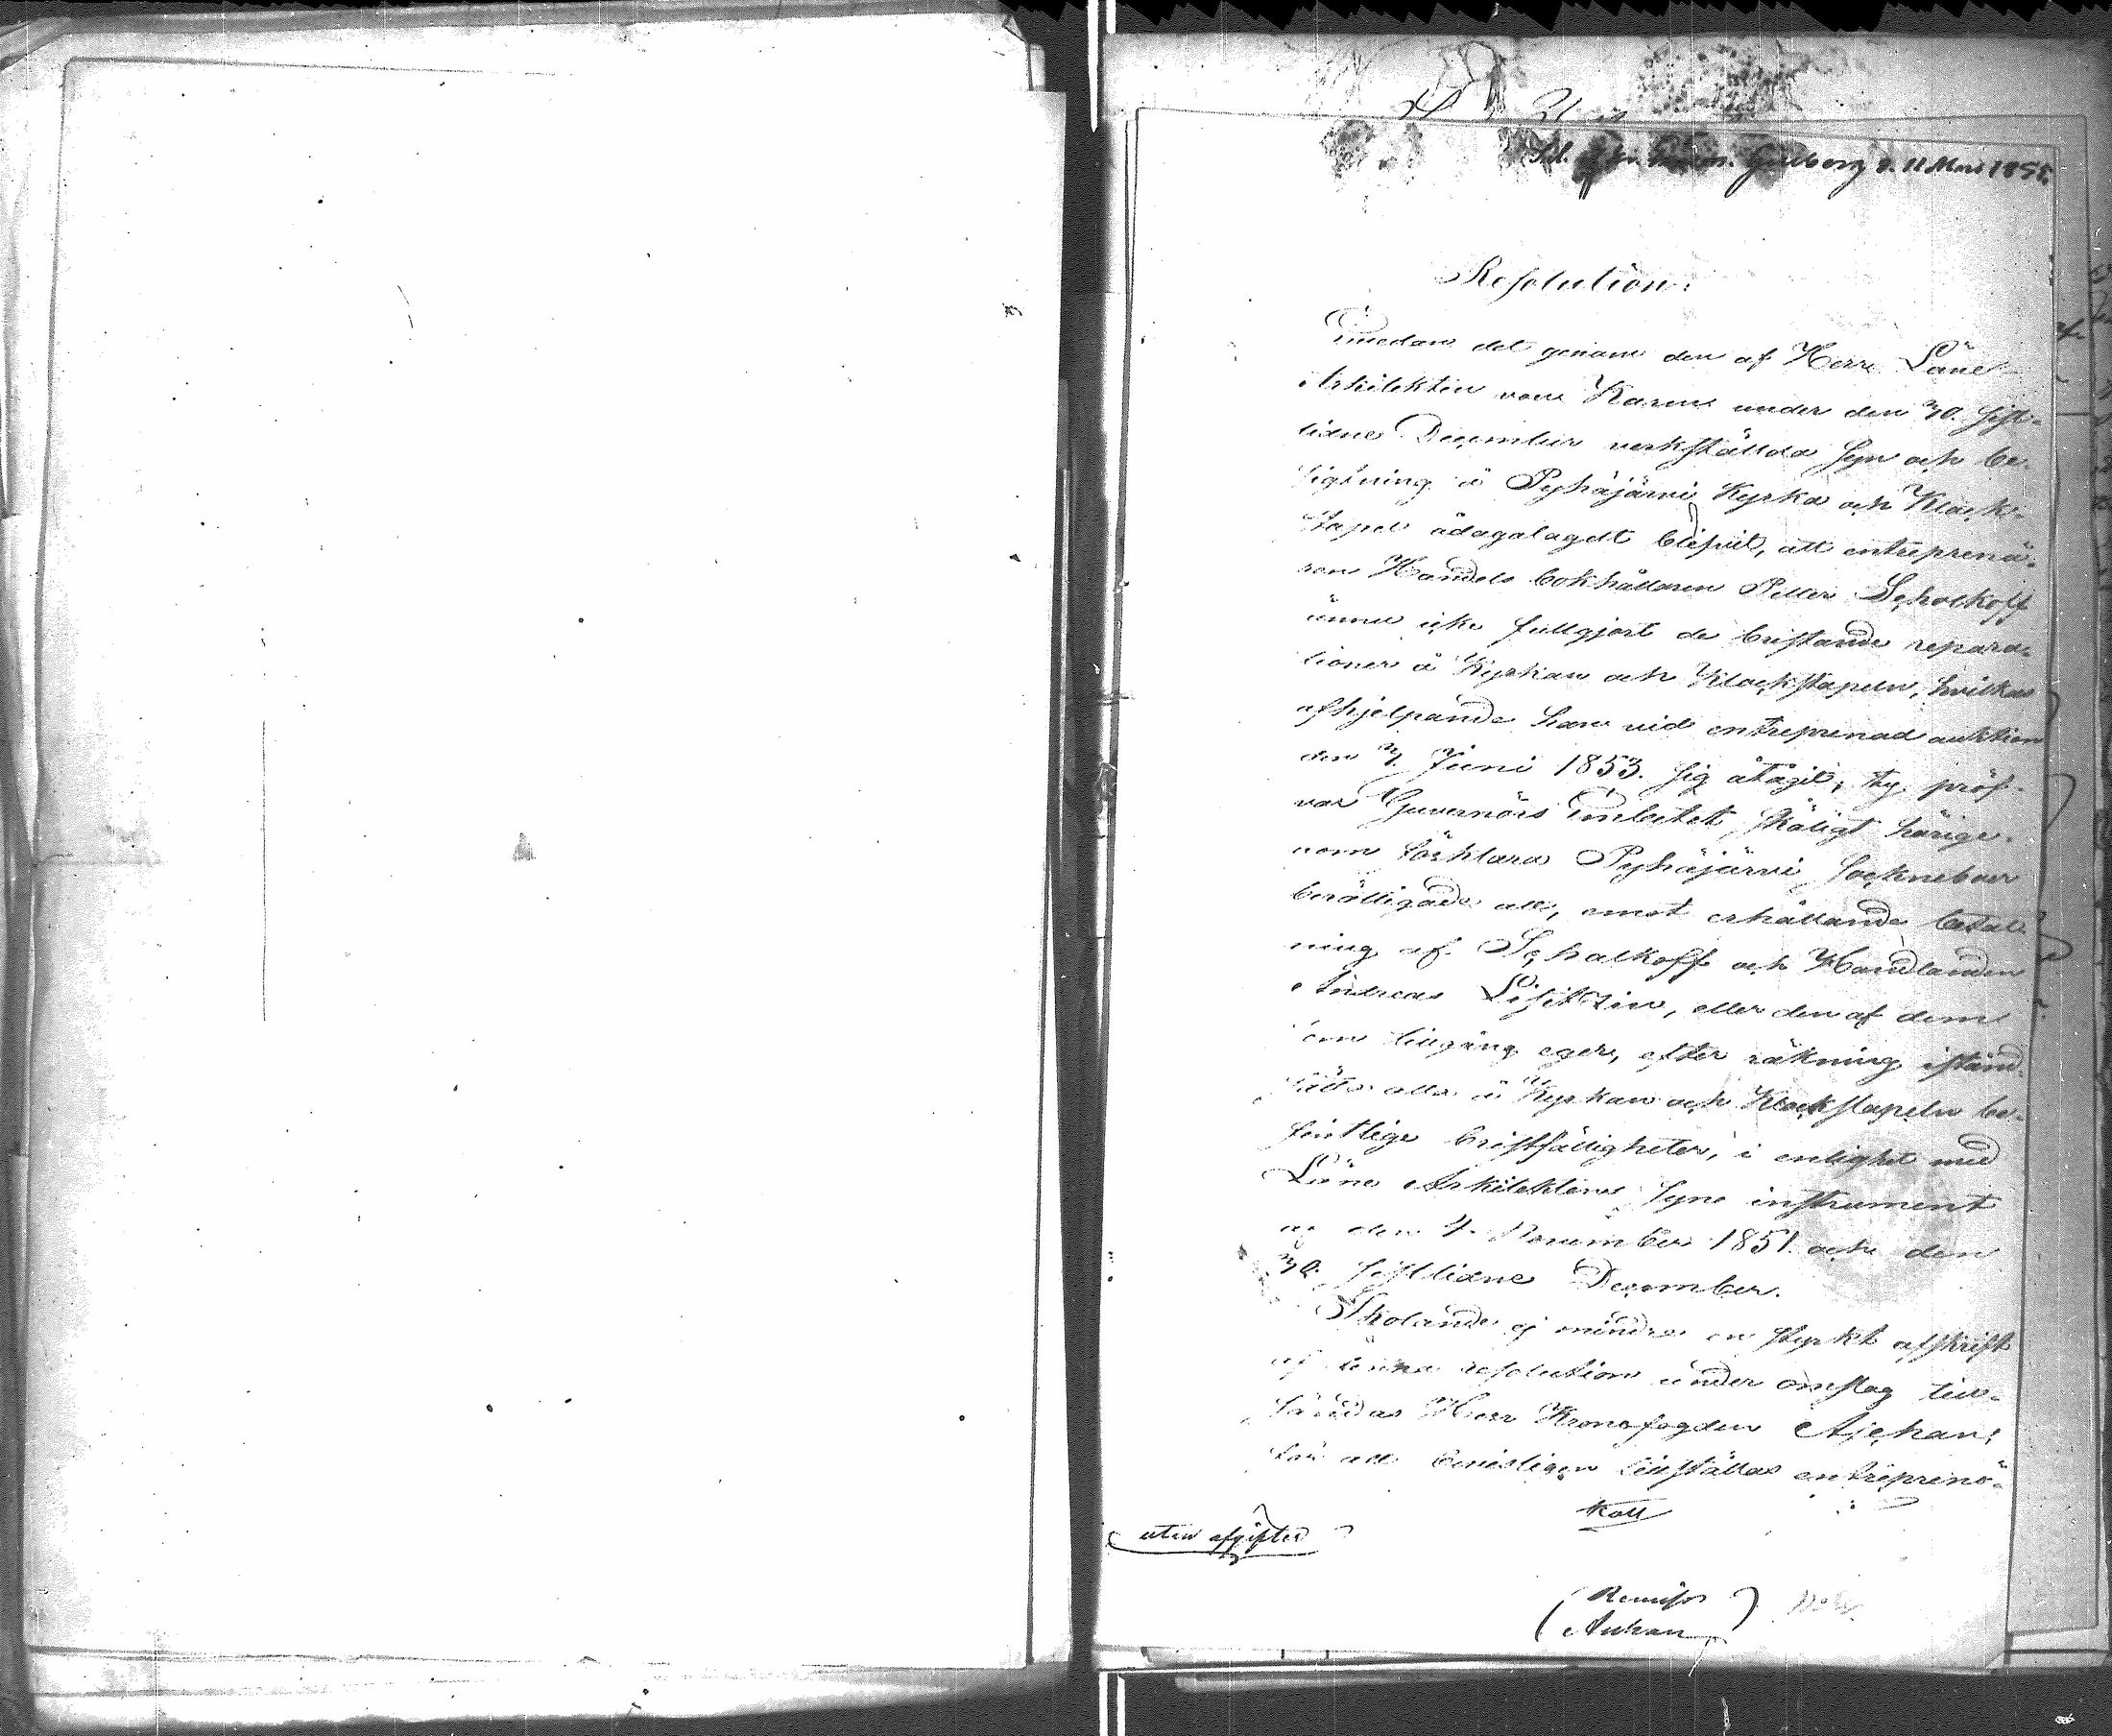 Göteborg d. 11 Mars 1855.
Resolution:
Emedan det genom den af Herr Läns
Arkitekten von Karm under den 30. sist-
lidne December verkställda syn och be-
sigtning å Pyhäjärvi Kyrka och Klock-
stapel ådagalagdt blifvit, att entreprenö-
ren Handels bokhållaren Petter Schalkoff
ännu icke fullgjort de bristande repara-
tioner å Kyrkan och Klockstapeln, hvilkas
afhjelpande han vid entreprenad auktion
den 7. Juni 1853. sig åtagit; ty pröf-
var Guvernörs Embetet skäligt härige-
nom förklara Pyhäjärvi Socknebor
berättigade att, emot erhållande betal-
ning af Schalkoff och Handlanden
Andreas Lisitzin, eller den af dem
som tillgång eger, efter räkning istånd-
sätta alla å Kyrkan och Klockstapeln be-
fintlige bristfälligheter, i enlighet med
Läns Arkitektens Syne instrument
af den 4. November 1851. och den
30. sistlidne December.
Skolande ej mindre en styrkt afskrift
af denna resolution under omslag till-
sändas Herr Kronofogden Aichan,
för att benisligen tillställas entreprenö-
utan afgifter